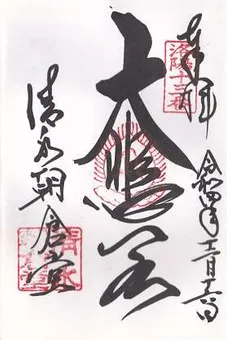 奉拝
洛陽十三番
令和四年十二月十六日
大悲閣
清水朝倉堂